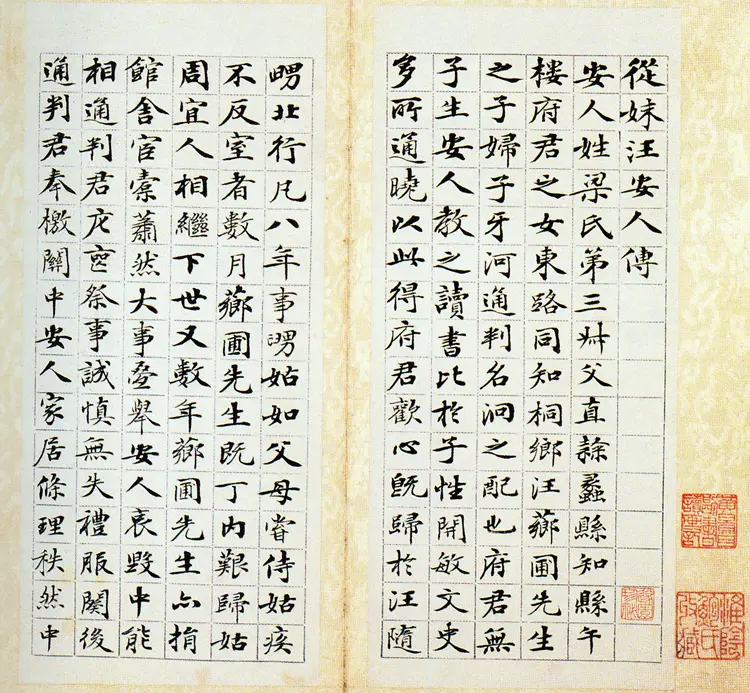 從妹汪安人傳
安人姓梁氏第三叔父直隸蠡縣知縣午
樓府君之女東路同知桐鄉汪薌圃先生
之子婦子牙河通判名泂之配也府君無
子生安人教之讀書比於子性開敏文史
多所通曉以此得府君歡心既歸於汪隨
舅北行凡八年事舅姑如父母嘗侍姑疾
不反室者數月薌圃先生既丁內艱歸姑
周宜人相繼下世又數年薌圃先生亦捐
館舍宦橐蕭然大事疊舉安人哀毀中能
相通判君庀窆祭事誠慎無失禮服闋後
通判君奉檄關中安人家居條理秩然中